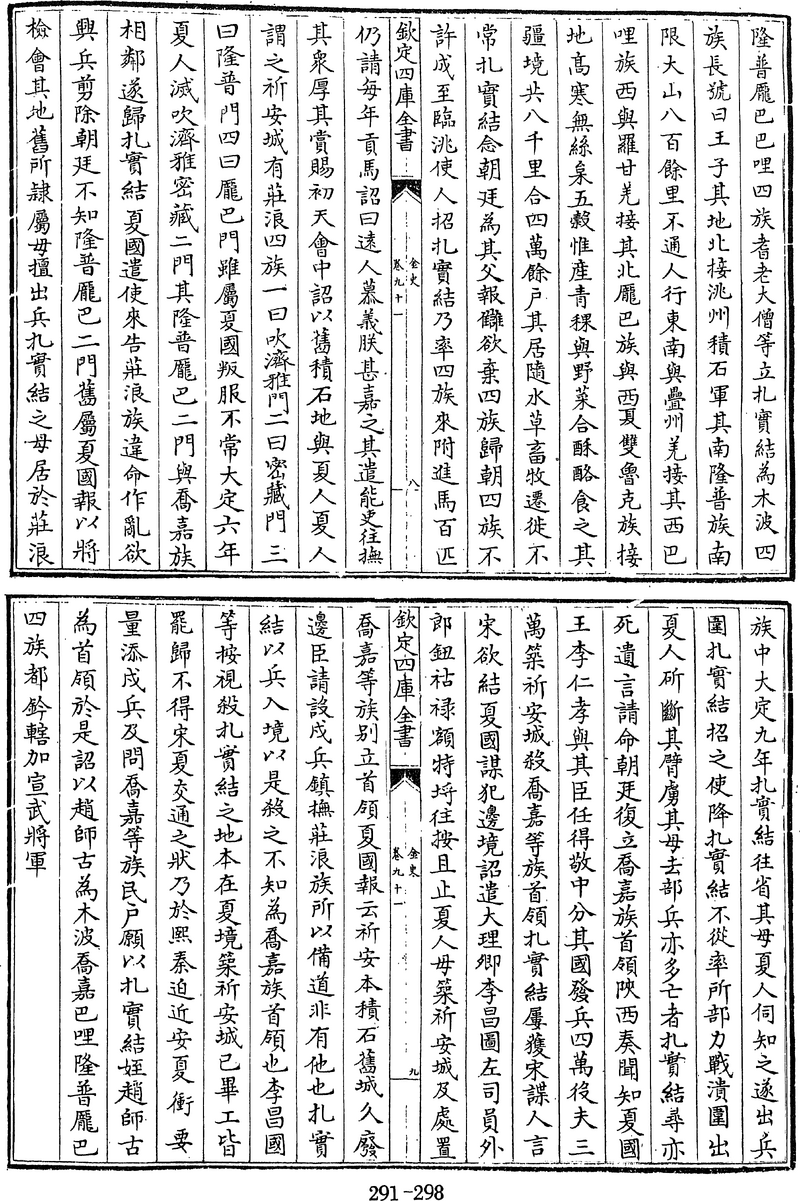 隆普龎巴巴哩四族耆老大僧等立扎實結為木波四
族長號曰王子其地北接洮州積石軍其南隆普族南
限大山八百餘里不通人行東南與疊州羌接其西巴
哩族西與羅甘羌接其北龎巴族與西夏雙魯克族接
地高寒無絲枲五穀惟産青稞與野菜合酥酪食之其
疆境共八千里合四萬餘户其居隨水草畜牧遷徙不
常扎實結念朝廷為其父報讎欲棄四族歸朝四族不
許成至臨洮使人招扎實結乃率四族來附進馬百匹
欽定四庫全書
金史
卷九十一
八
仍請每年貢馬詔曰逺人慕義朕甚嘉之其遣能吏往撫
其衆厚其賞賜初天會中詔以舊積石地與夏人夏人
謂之祈安城有莊浪四族一曰吹濟雅門二曰密藏門三
曰隆普門四曰龎巴門雖屬夏國叛服不常大定六年
夏人滅吹濟雅密藏二門其隆普龎巴二門與喬嘉族
相鄰遂歸扎實結夏國遣使來告莊浪族違命作亂欲
興兵剪除朝廷不知隆普龎巴二門舊屬夏國報以將
檢會其地舊所隸屬毋擅出兵扎實結之母居於莊浪
族中大定九年扎實結往省其母夏人伺知之遂出兵
圍扎實結招之使降扎實結不從率所部力戰潰圍出
夏人斫斷其臂虜其母去部兵亦多亡者扎實結尋亦
死遺言請命朝廷復立喬嘉族首領陜西奏聞知夏國
王李仁孝與其臣任得敬中分其國發兵四萬役夫三
萬築祈安城殺喬嘉等族首領扎實結屢獲宋諜人言
宋欲結夏國謀犯邊境詔遣大理卿李昌圖左司員外
郎鈕祜禄額特埒往按且止夏人毋築祈安城及處置
欽定四庫全書
金史
卷九十一
九
喬嘉等族别立首領夏國報云祈安本積石舊城久廢
邊臣請設戍兵鎮撫莊浪族所以備道非有他也扎實
結以兵入境以是殺之不知為喬嘉族首領也李昌國
等按視殺扎實結之地本在夏境築祈安城已畢工皆
罷歸不得宋夏交通之狀乃於熙秦迫近安夏衝要
量添戍兵及問喬嘉等族民户願以扎實結姪趙師古
為首領於是詔以趙師古為木波喬嘉巴哩隆普龎巴
四族都鈐轄加宣武將軍
291-298